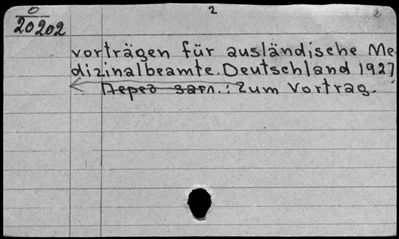 0
20202
2
vorträgen für ausländische Me-
dizinalbeamte. Deutschland 1927
Перед загл.: Zum Vortrag.